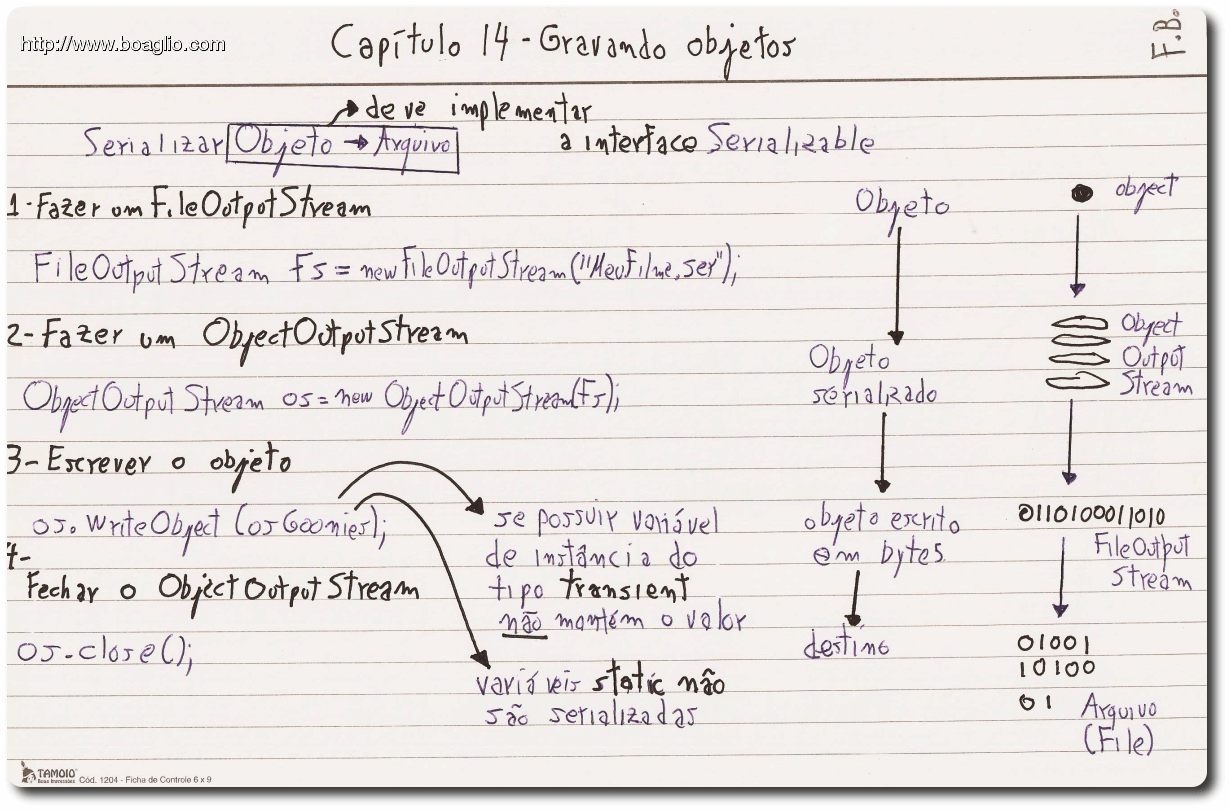 http://www.boaglio.com
Capítulo 14 - Gravando objetos
F.B.
deve implementar
Serializar Objeto → Arquivo
a interface Serializable
1-Fazer um FileOutputStream
FileOutputStream Fs = new FileOutputStream("MeuFilme.ser");
2-Fazer um ObjectOutputStream
ObjectOutputStream os = new ObjectOutputStream(Fs);
3-Escrever o objeto
os.WriteObject (osGoonies);
4-
Fechar o ObjectOutputStream
os.close();
se possuir variável
de instância do
tipo transient
não mantém o valor
variáveis static não
são serializadas
Objeto
Objeto
serializado
objeto escrito
em bytes
destino
object
Object
Output
Stream
0110100011010
FileOutput
Stream
01001
10100
01
Arquivo
(File)
TAMOIO
Boas Impressões
Cód. 1204 - Ficha de Controle 6 x 9